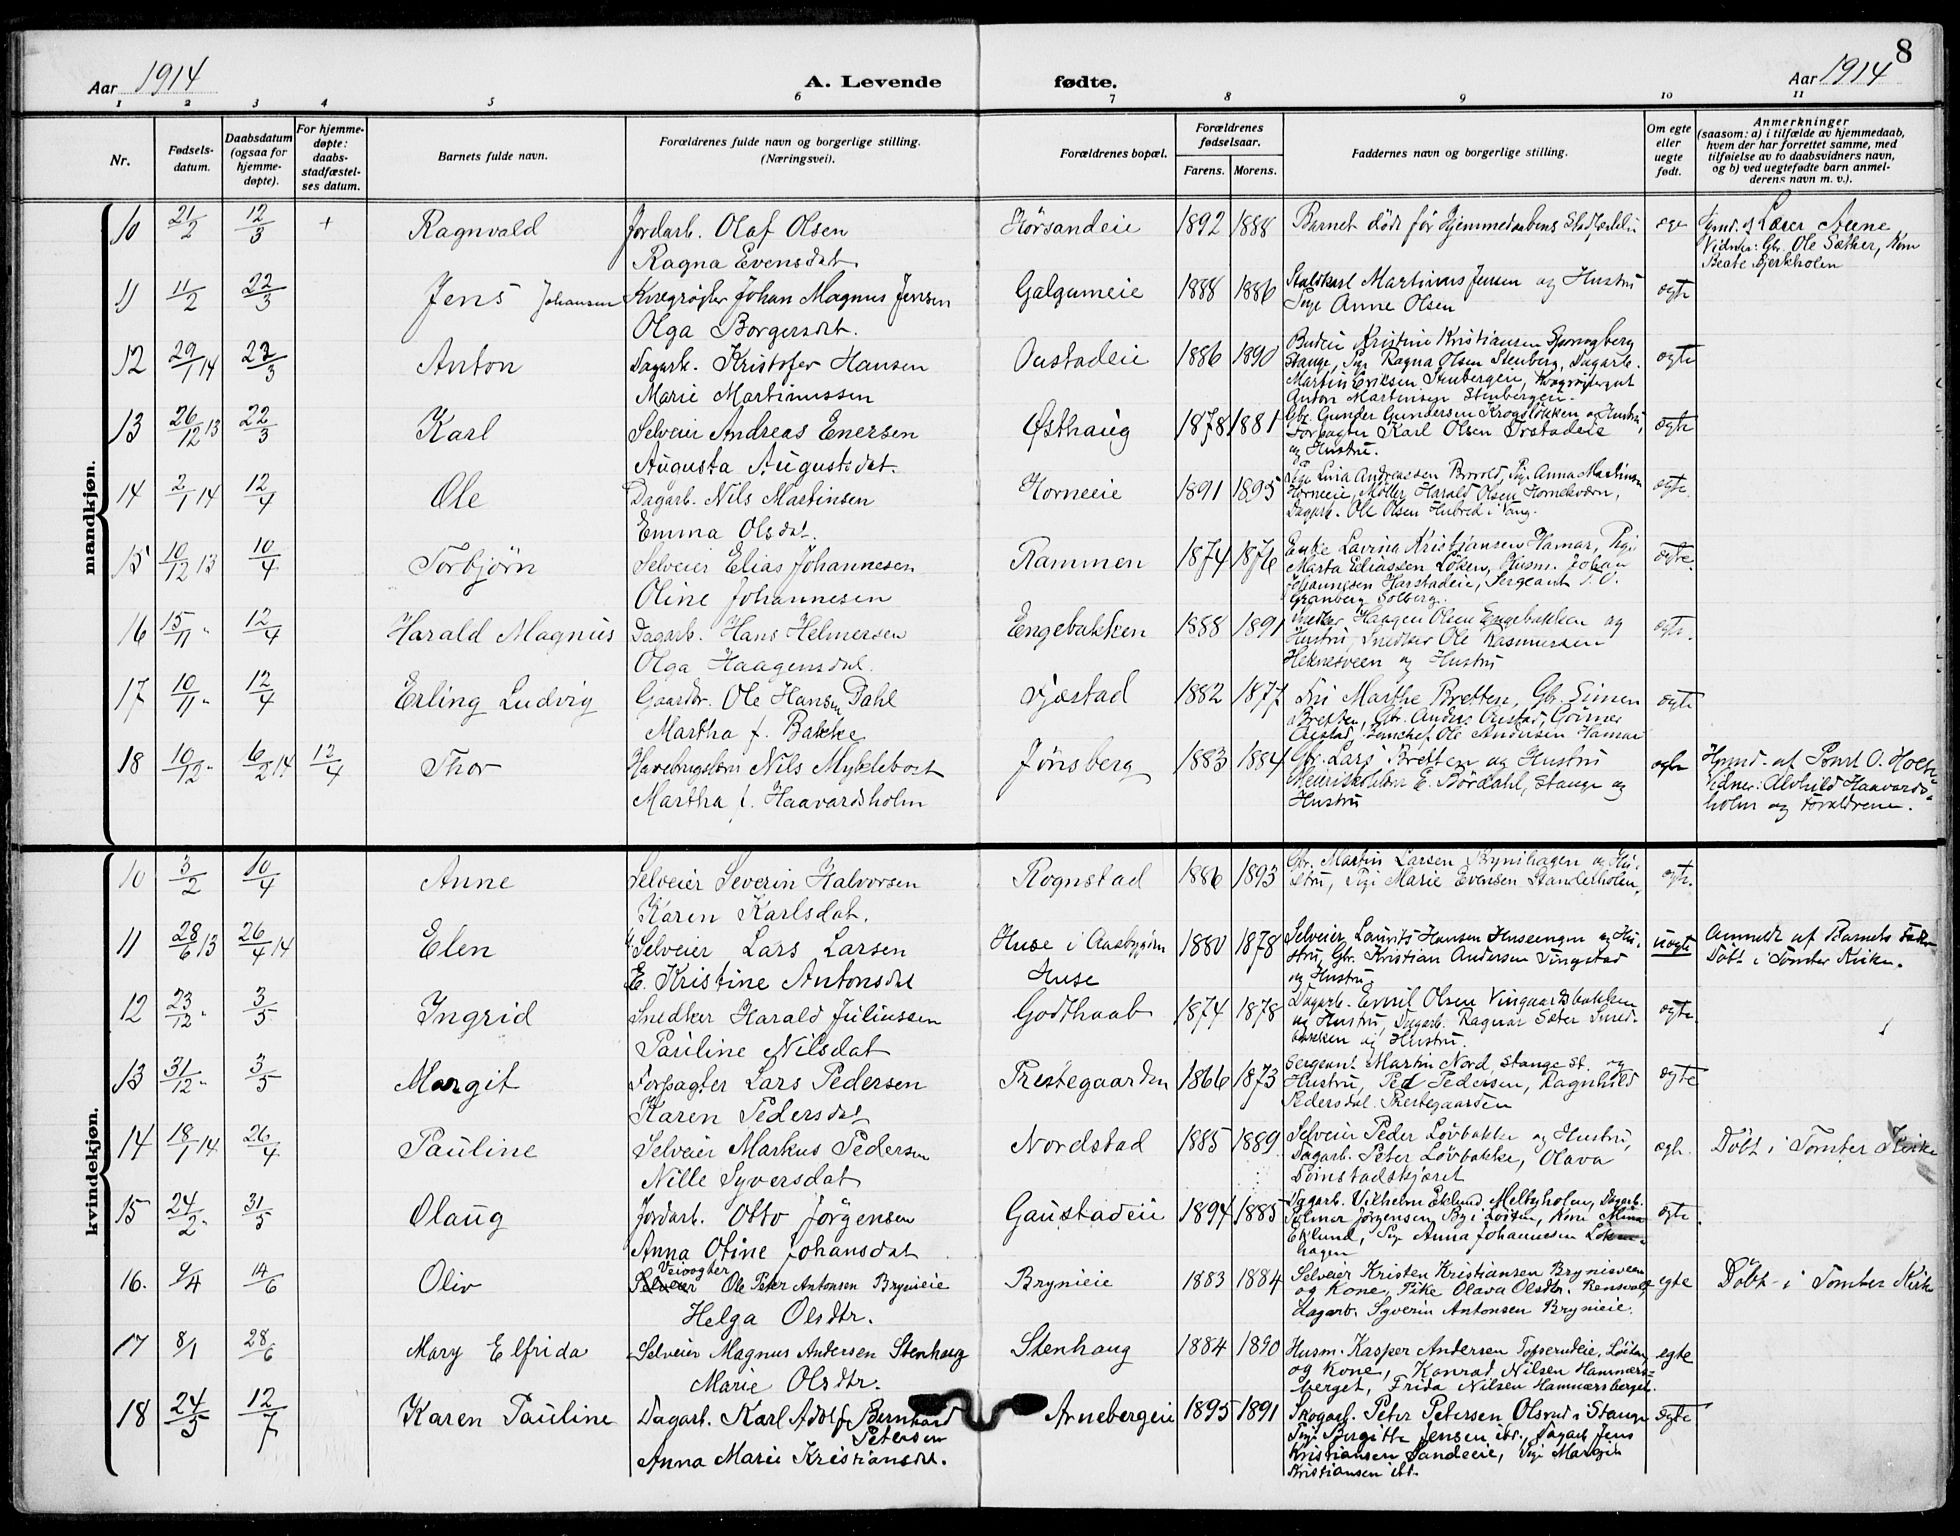 8
Aar 1914
A. Levende fødte.
Aar 1914
1 2 3 4 5 6 7 8 9 10 11
Nr.
Fødsels-
datum.
Daabsdatum
(ogsaa for
hjemme-
døpte).
For hjemme-
døpte:
daabs-
stadfæstel-
ses datum.
Barnets fulde navn.
Forældrenes fulde navn og borgerlige stilling.
(Næringsvei).
Forældrenes bopæl.
Forældrenes
fødselsaar.
Farens. Morens.
Faddernes navn og borgerlige stilling.
Om egte
eller
uegte
født.
Anmerkninger
(saasom: a) i tilfælde av hjemmedaab,
hvem der har forrettet samme, med
tilføielse av to daabsvidners navn,
og b) ved uegtefødte barn anmel-
derens navn m. v.).
mandkjøn.
10 21/2 12/3 + Ragnvald Jordarb. Olaf Olsen Hørsandeie 1892 1888 Barnet døde før Hjemmedaabens
Ragna Evensdat
Vidner: Gbr. Ole Sæther, Kone
Beate Bjerkholen
11 11/2 22/3 Jens Johansen Johan Magnus Jensen Galgumeie 1888 1886 Martinus Jensen og Hustru egte
Olga Borgersdat. Pige Anne Olsen
12 29/1 14 22/3 Anton Dagarb. Kristofer Hansen Oustadeie 1886 1890 Budeie Kristine Kristiansen egte
Stange, Pige Ragna Olsen Stenberg, Dagarb.
Marie Martinussen Martin Eriksen Stenbergeie,
Anton Martinsen Stenbergeie.
13 26/12 13 22/3 Karl Selveier Andreas Enersen Østhaug 1878 1881 Gbr. Gunder Gundersen Krogsløkken og Hustru, egte
Forpagter Karl Olsen
Augusta Augustsdat. og Hustru.
14 2/1 14 12/4 Ole Dagarb. Nils Martinsen Horneeie 1891 1895 Pige Lina Andreassen Pige Anna Martinsen egte.
Horneeie, Møller Harald Olsen Hornekvern,
Emma Olsdat. Dagarb. Ole Olsen Hubred i Vang.
15 10/12 13 10/4 Torbjørn Selveier Elias Johannesen Rammen 1874 1876 Enke Lavina Kristiansen Hamar, Pige egte.
Marta Eliassen Løken, Husm. Johan
Oline Johannesen Johannesen Harstadeie, Sergeant
Granberg Solberg.
16 15/11 " 12/4 Harald Magnus Dagarb. Hans Helmersen Engebakken 1888 1891 Snedker Haagen Olsen Engebakken og egte.
Hustru, Snedker Ole Rasmussen
Olga Haagensdat. Heknesveen og Hustru
17 10/11 " 12/4 Erling Ludvig Gaardbr. Ole Hansen Dahl Gjestad 1882 1877 Fru Marthe Bretten, Gbr. Simen egte
Bretten, Gbr. Anders
Martha f. Bakke Ole Andersen Hamar
18 10/12 " 6/2 14 12/4 Thor Nils Myklebost Jønsberg 1883 1884 Gbr. Lars Bretten og Hustru egte
Meieribestyrer E. Børdahl, Stange og
Martha f. Haavardsholm Hustru
Vidner: Alvhild Haavards-
holm og Forældrene.
kvindekjøn.
10 3/2 10/4 Anne Selveier Severin Halvorsen Rognstad 1886 1893 Gbr. Martin Larsen Brynihagen og Hu- egte.
Karen Karlsdat. stru, Pige Marie Evensen Standerholen,
11 28/6 13 26/4 14 Elen Selveier Lars Larsen Huse i Aasbygden 1880 1878 Selveier Laurits Hansen Huseengen og Hu- uegte Anmeldt af Barnets Fader
stru, Gbr. Kristian Andersen Tingstad Døbt i Tomter Kirke.
E. Kristine Antonsdat Huse og Hustru
12 23/12 " 3/5 Ingrid Snedker Harald Juliussen Godthaab 1874 1878 Dagarb. Emil Olsen Vingaardsbakken egte.
og Hustru, Dagarb. Ragnar Sæter Smed-
Pauline Nilsdat bakken og Hustru.
13 31/12 " 3/5 Margit Forpagter Lars Pedersen Prestegaarden 1866 1873 Sergeant Martin Nord, Stange St. og egte
Hustru, Ped Pedersen, Ragnhild
Karen Pedersdat Pedersdat. Prestegaarden
14 18/1 14 26/4 Pauline Selveier Markus Pedersen Nordstad 1885 1889 Selveier Peder Løvbakke og Hustru, egte. Døbt i Tomter Kirke
Dagarb. Peter Løvbakke, Olava
Nille Syversdat Tomstadskjæret
15 24/2 " 31/5 Olaug Jordarb. Otto Jørgensen Gaustadeie 1894 1885 Dagarb. Vilhelm Eklund Melbyholen, Dagarb. egte.
Palmer Jørgensen By i Løiten, Kone Mina
Anna Otine Johansdat Eklund, Pige Anna Johannesen Løken-
hagen
16. 9/4 14/6 Oliv Veivogter Brynieie 1883 1884 Selveier Kristen Kristiansen Brynisveen egte Døbt i Tomter Kirke
Selveier Ole Peter Antonsen Brynieie og Kone, Pike Olava Olsdtr.
Helga Olsdtr. Dagarb. Syverin Antonsen Brynieie.
17 8/1 28/6 Mary Elfrida Selveier Magnus Andersen Stenhaug Stenhaug 1884 1890 Husm. Kasper Andersen Løiten, egte
og Kone, Konrad Nilsen Hammers-
Marie Olsdtr. berget, Frida Nilsen Hammersberget.
18 24/5 12/7 Karen Pauline Dagarb. Karl Adolf Bernhard Arnebergeie 1895 1891 Skogarb. Peter Petersen Olsrud i Stange egte
Petersen Pige Birgitte Jensen ibd., Dagarb. Jens
Anna Marie Kristiansdat. Kristiansen Sandeeie, Pige Margit
Kristiansen ibd.